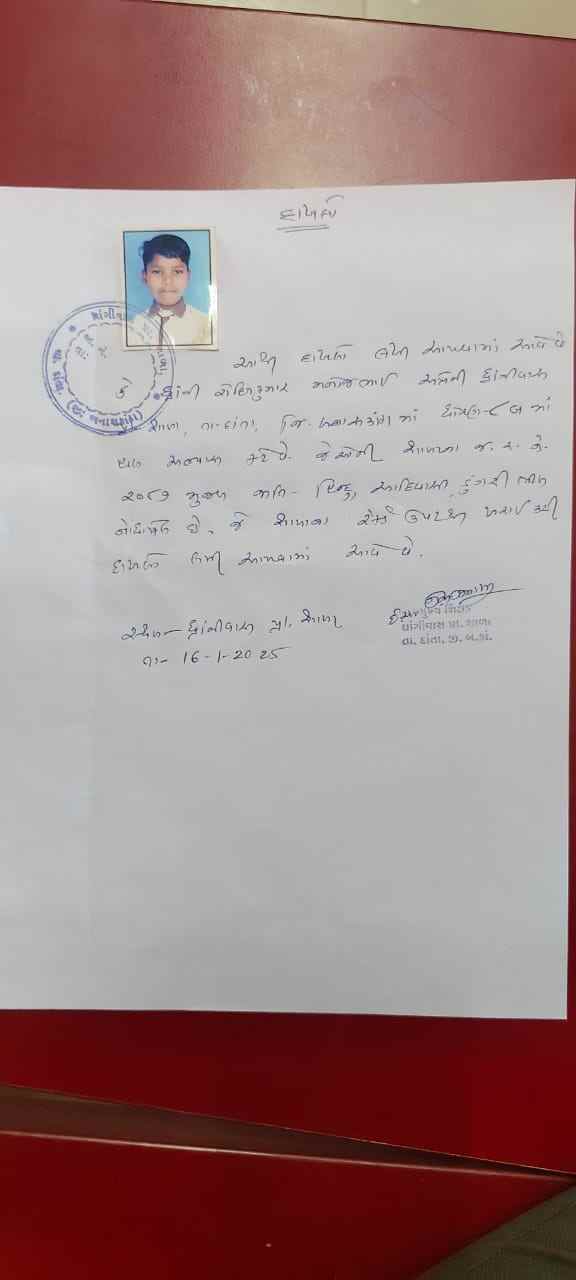 દાખલો
આથી દાખલો લખી આપવામાં આવે છે
કે ધ્રાંગી રોહિતકુમાર મનોજભાઈ અમારી ધ્રાંગીવાસ
શાળા, તા-દાંતા, જિ-બનાસકાંઠામાં ધોરણ-૮ બ માં
હાલ અભ્યાસ કરે છે. જેઓની શાળાના જ.ર.નં.
૨૦૮૭ મુજબ જાતિ- હિન્દુ આદિવાસી ડુંગરી ભીલ
નોંધાયેલ છે. જે શાળાના રેકર્ડ ઉપરથી ખરાઈ કરી
દાખલો લખી આપવામાં આવે છે.
સ્થળ- ધ્રાંગીવાસ પ્રા. શાળા
તા- 16-1-2025
મુખ્ય શિક્ષક
ધ્રાંગીવાસ પ્રા. શાળા
તા. દાંતા, જી. બ.કાં.